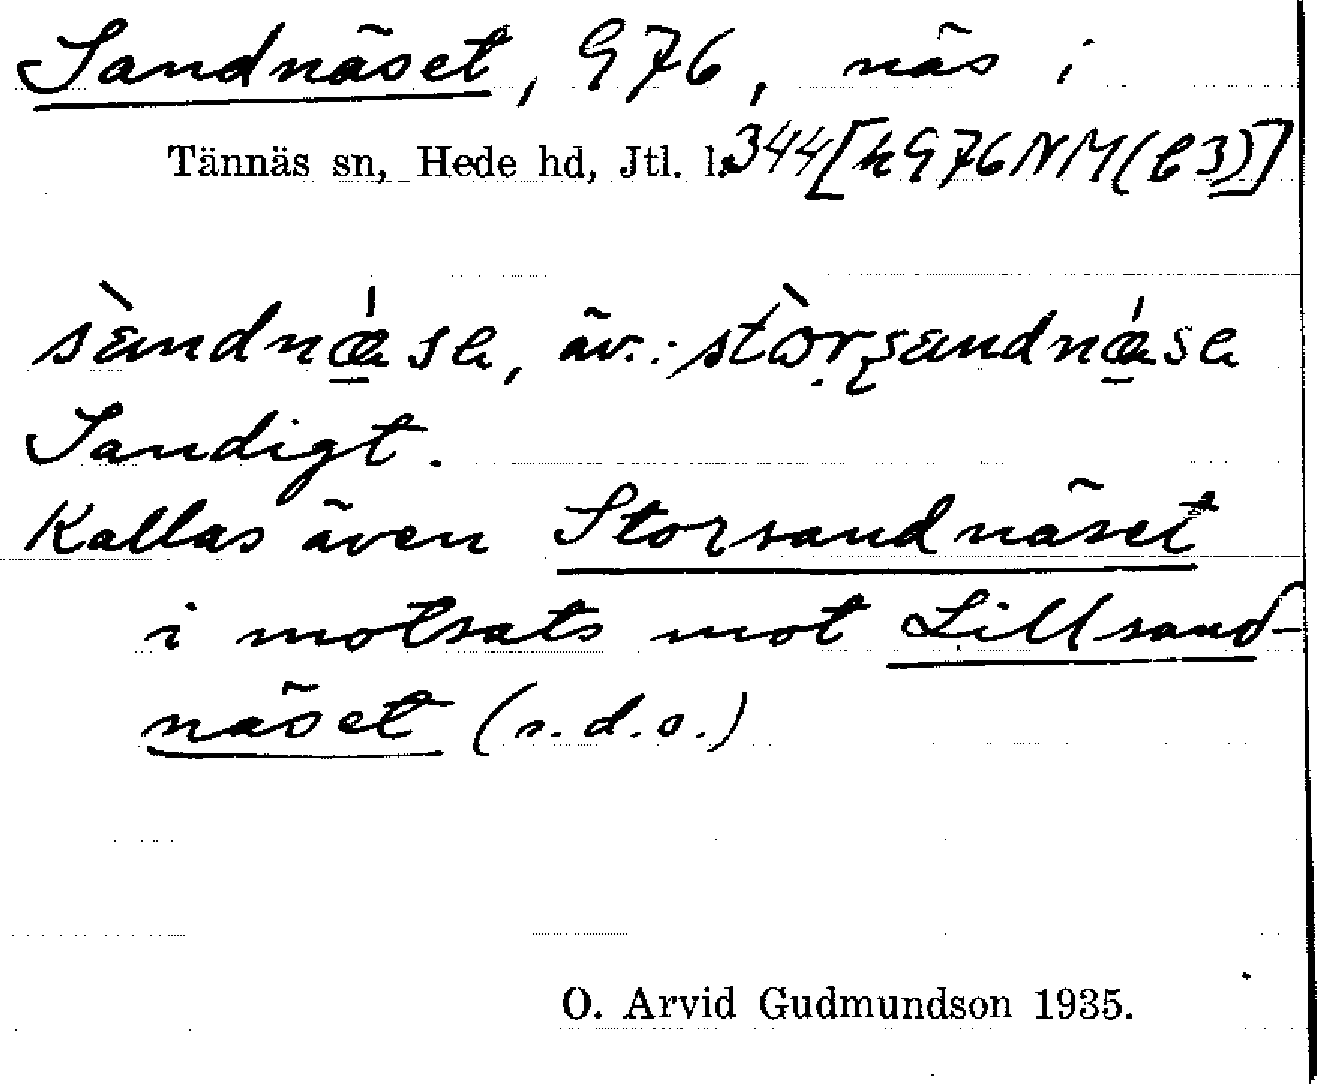 Sandnäset, G 76, näs i
Tännäs sn, Hede hd, Jtl. l. 344 [h G 76 NM (C 3)]
sàndnǽsa, äv.: stòrsandnǽsa
Sandigt.
Kallas även Storsandnäset
i motsats mot Lillsand-
näset (s.d.o.)
O. Arvid Gudmundson 1935.